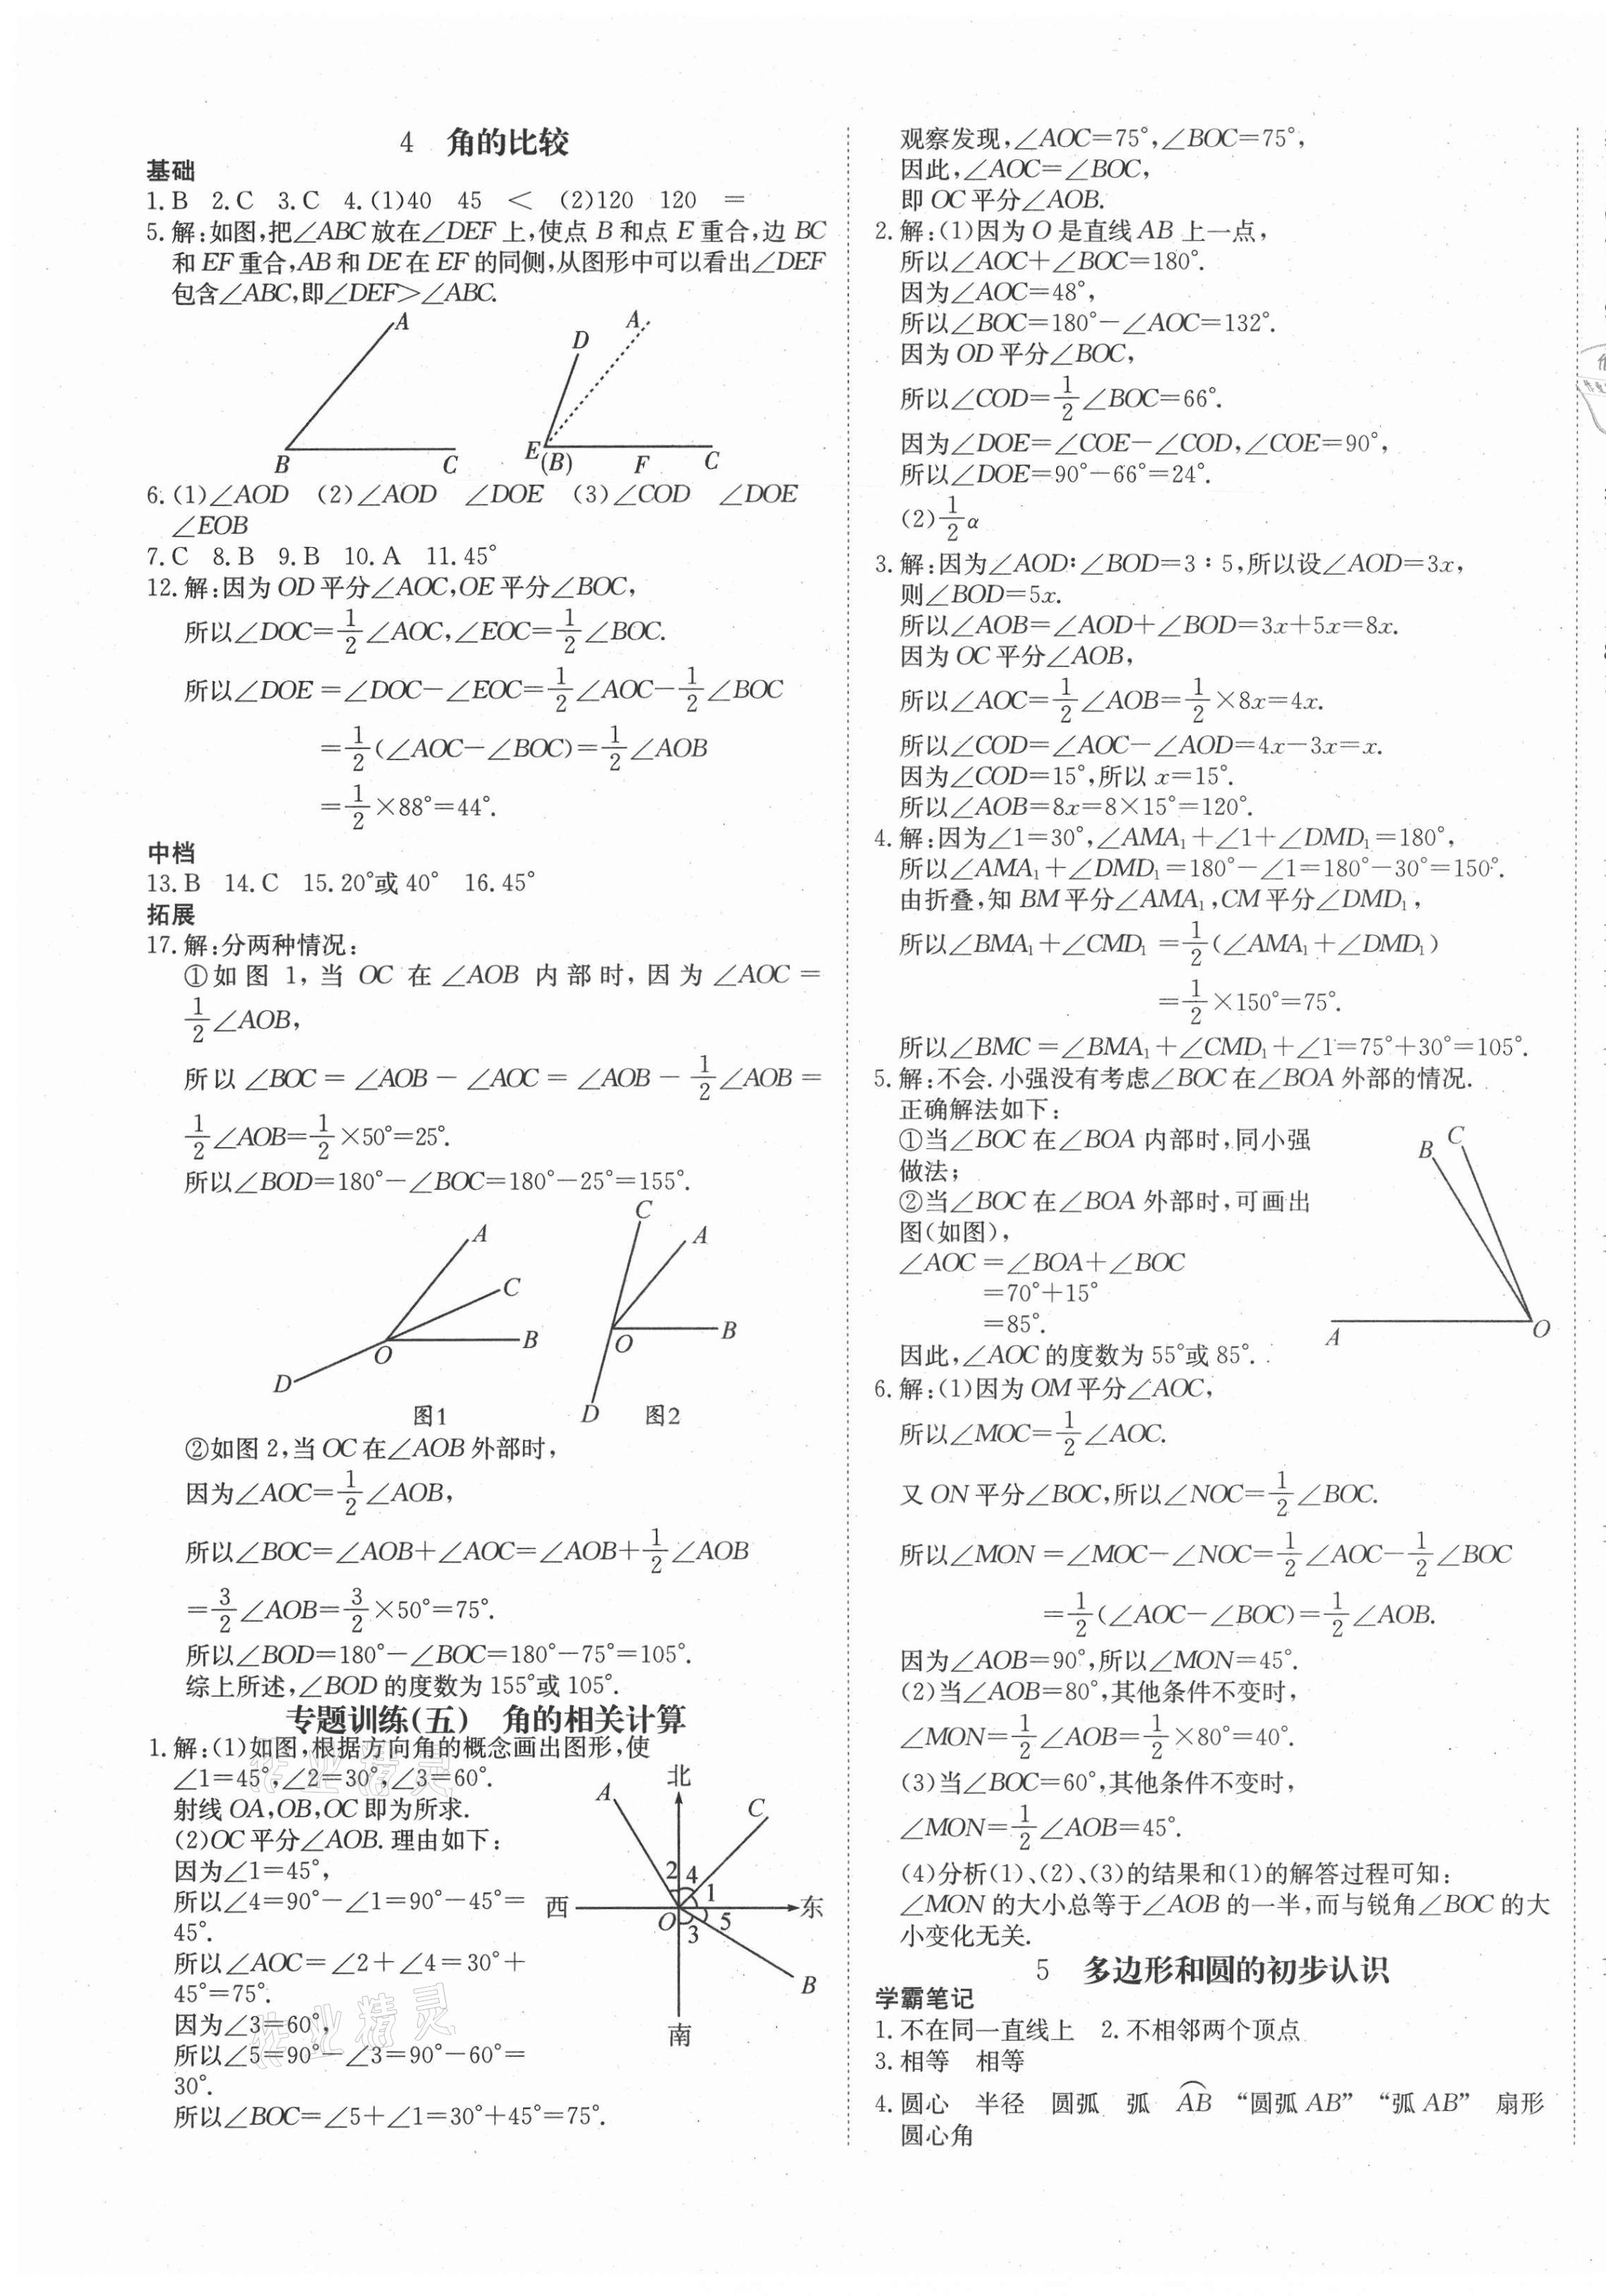 4 角的比较
基础
1. B 2. C 3. C 4. (1)40 45 < (2)120 120 =
5. 解:如图,把∠ABC 放在∠DEF 上,使点 B 和点 E 重合,边 BC
和 EF 重合,AB 和 DE 在 EF 的同侧,从图形中可以看出∠DEF
包含∠ABC,即∠DEF>∠ABC.
A
B
C
A
D
E
(B)
F
C
6. (1)∠AOD (2)∠AOD ∠DOE (3)∠COD ∠DOE
∠EOB
7. C 8. B 9. B 10. A 11. 45°
12. 解:因为 OD 平分∠AOC,OE 平分∠BOC,
所以∠DOC=1/2∠AOC,∠EOC=1/2∠BOC.
所以∠DOE=∠DOC-∠EOC=1/2∠AOC-1/2∠BOC
=1/2(∠AOC-∠BOC)=1/2∠AOB
=1/2×88°=44°.
中档
13. B 14. C 15. 20°或 40° 16. 45°
拓展
17. 解:分两种情况:
①如图 1,当 OC 在∠AOB 内部时,因为∠AOC=
1/2∠AOB,
所以∠BOC=∠AOB-∠AOC=∠AOB-1/2∠AOB=
1/2∠AOB=1/2×50°=25°.
所以∠BOD=180°-∠BOC=180°-25°=155°.
A
C
B
O
D
图1
C
A
B
O
D
图2
②如图 2,当 OC 在∠AOB 外部时,
因为∠AOC=1/2∠AOB,
所以∠BOC=∠AOB+∠AOC=∠AOB+1/2∠AOB
=3/2∠AOB=3/2×50°=75°.
所以∠BOD=180°-∠BOC=180°-75°=105°.
综上所述,∠BOD 的度数为 155°或 105°.
专题训练(五) 角的相关计算
1. 解:(1)如图,根据方向角的概念画出图形,使
∠1=45°,∠2=30°,∠3=60°.
射线 OA,OB,OC 即为所求.
(2)OC 平分∠AOB. 理由如下:
因为∠1=45°,
所以∠4=90°-∠1=90°-45°=
45°.
所以∠AOC=∠2+∠4=30°+
45°=75°.
因为∠3=60°,
所以∠5=90°-∠3=90°-60°=
30°.
所以∠BOC=∠5+∠1=30°+45°=75°.
北
A
C
2 4
1
西
东
O
3
5
B
南
作业精灵
作业精灵
观察发现,∠AOC=75°,∠BOC=75°,
因此,∠AOC=∠BOC,
即 OC 平分∠AOB.
2. 解:(1)因为 O 是直线 AB 上一点,
所以∠AOC+∠BOC=180°.
因为∠AOC=48°,
所以∠BOC=180°-∠AOC=132°.
因为 OD 平分∠BOC,
所以∠COD=1/2∠BOC=66°.
因为∠DOE=∠COE-∠COD,∠COE=90°,
所以∠DOE=90°-66°=24°.
(2)1/2α
3. 解:因为∠AOD:∠BOD=3:5,所以设∠AOD=3x,
则∠BOD=5x.
所以∠AOB=∠AOD+∠BOD=3x+5x=8x.
因为 OC 平分∠AOB,
所以∠AOC=1/2∠AOB=1/2×8x=4x.
所以∠COD=∠AOC-∠AOD=4x-3x=x.
因为∠COD=15°,所以 x=15°.
所以∠AOB=8x=8×15°=120°.
4. 解:因为∠1=30°,∠AMA₁+∠1+∠DMD₁=180°,
所以∠AMA₁+∠DMD₁=180°-∠1=180°-30°=150°.
由折叠,知 BM 平分∠AMA₁,CM 平分∠DMD₁,
所以∠BMA₁+∠CMD₁=1/2(∠AMA₁+∠DMD₁)
=1/2×150°=75°.
所以∠BMC=∠BMA₁+∠CMD₁+∠1=75°+30°=105°.
5. 解:不会. 小强没有考虑∠BOC 在∠BOA 外部的情况.
正确解法如下:
①当∠BOC 在∠BOA 内部时,同小强
做法;
②当∠BOC 在∠BOA 外部时,可画出
图(如图),
∠AOC=∠BOA+∠BOC
=70°+15°
=85°.
因此,∠AOC 的度数为 55°或 85°.
B
C
A
O
6. 解:(1)因为 OM 平分∠AOC,
所以∠MOC=1/2∠AOC.
又 ON 平分∠BOC,所以∠NOC=1/2∠BOC.
所以∠MON=∠MOC-∠NOC=1/2∠AOC-1/2∠BOC
=1/2(∠AOC-∠BOC)=1/2∠AOB.
因为∠AOB=90°,所以∠MON=45°.
(2)当∠AOB=80°,其他条件不变时,
∠MON=1/2∠AOB=1/2×80°=40°.
(3)当∠BOC=60°,其他条件不变时,
∠MON=1/2∠AOB=45°.
(4)分析(1)、(2)、(3)的结果和(1)的解答过程可知:
∠MON 的大小总等于∠AOB 的一半,而与锐角∠BOC 的大
小变化无关.
5 多边形和圆的初步认识
学霸笔记
1. 不在同一直线上 2. 不相邻两个顶点
3. 相等 相等
4. 圆心 半径 圆弧 弧 A͡B “圆弧 AB” “弧 AB” 扇形
圆心角